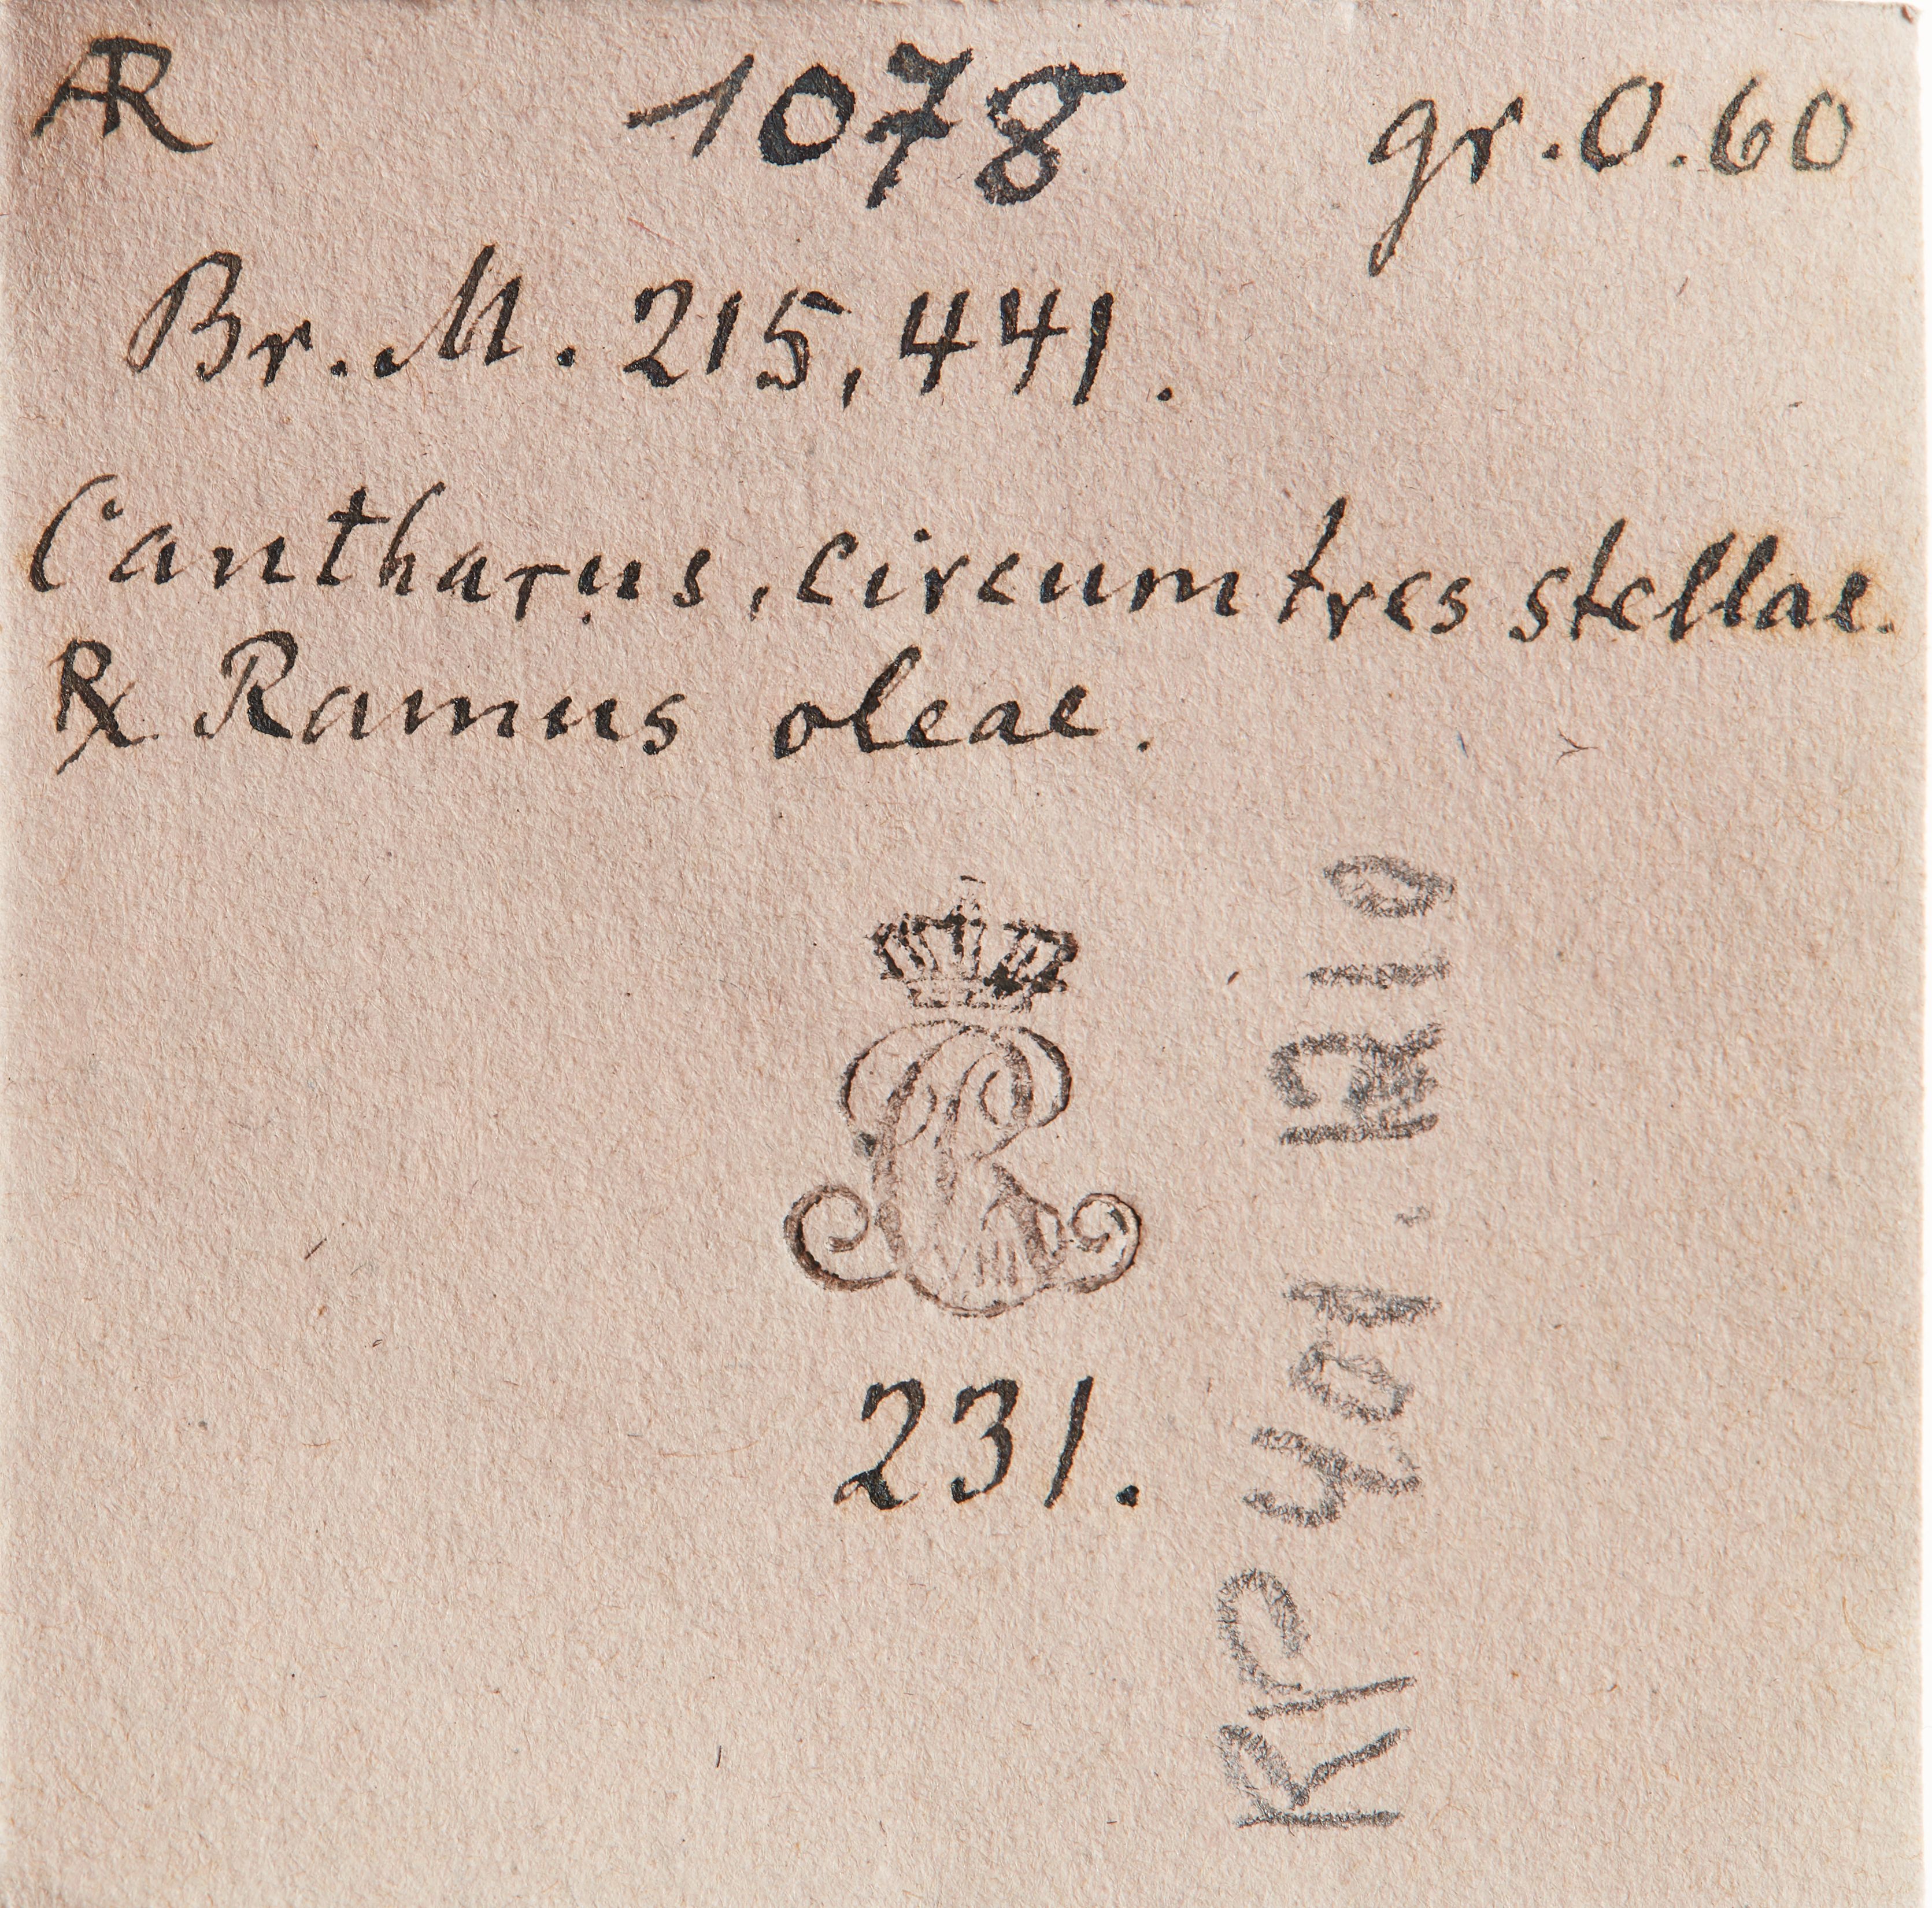 ÆR 1078 gr. 0.60
Br. M. 215, 441.
Cantharus, circum tres stellae.
℞ Ramus oleae.
231.